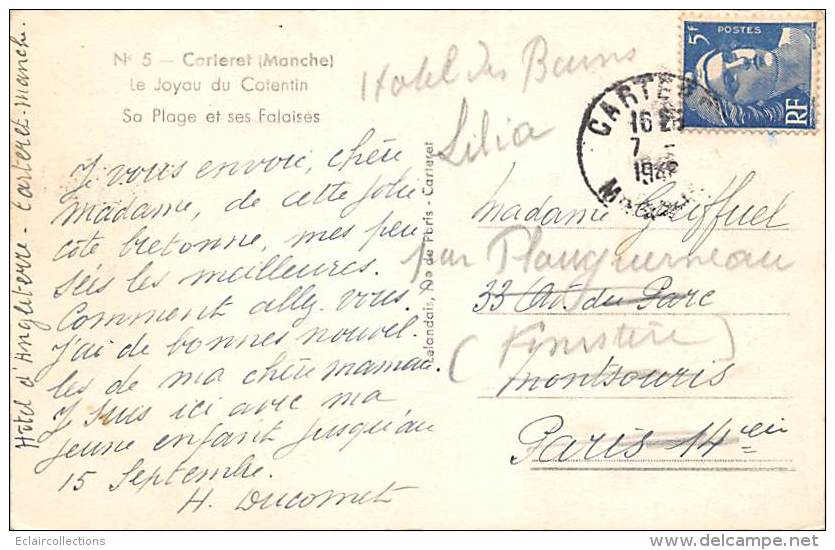 Nº 5 – Carteret (Manche)
Le Joyau du Cotentin
Sa Plage et ses Falaises
Hôtel d'Angleterre - Carteret - Manche.
Je vous envoie, chère
madame, de cette jolie
côte bretonne, mes pen
sées les meilleures.
Comment allez-vous.
J'ai de bonnes nouvel.
les de ma chère maman.
Je suis ici avec ma
jeune enfant jusqu'au
15 Septembre.
H. Ducomet
Lelandais, Carteret
Hotel des Bains
Lilia
par Plouguerneau
(Finistère)
POSTES
5F
RF
CARTERET
16
7
19
Madame
33 Av. du Parc
Montsouris
Paris 14 ein
Eclaircollections
www.delcampe.net